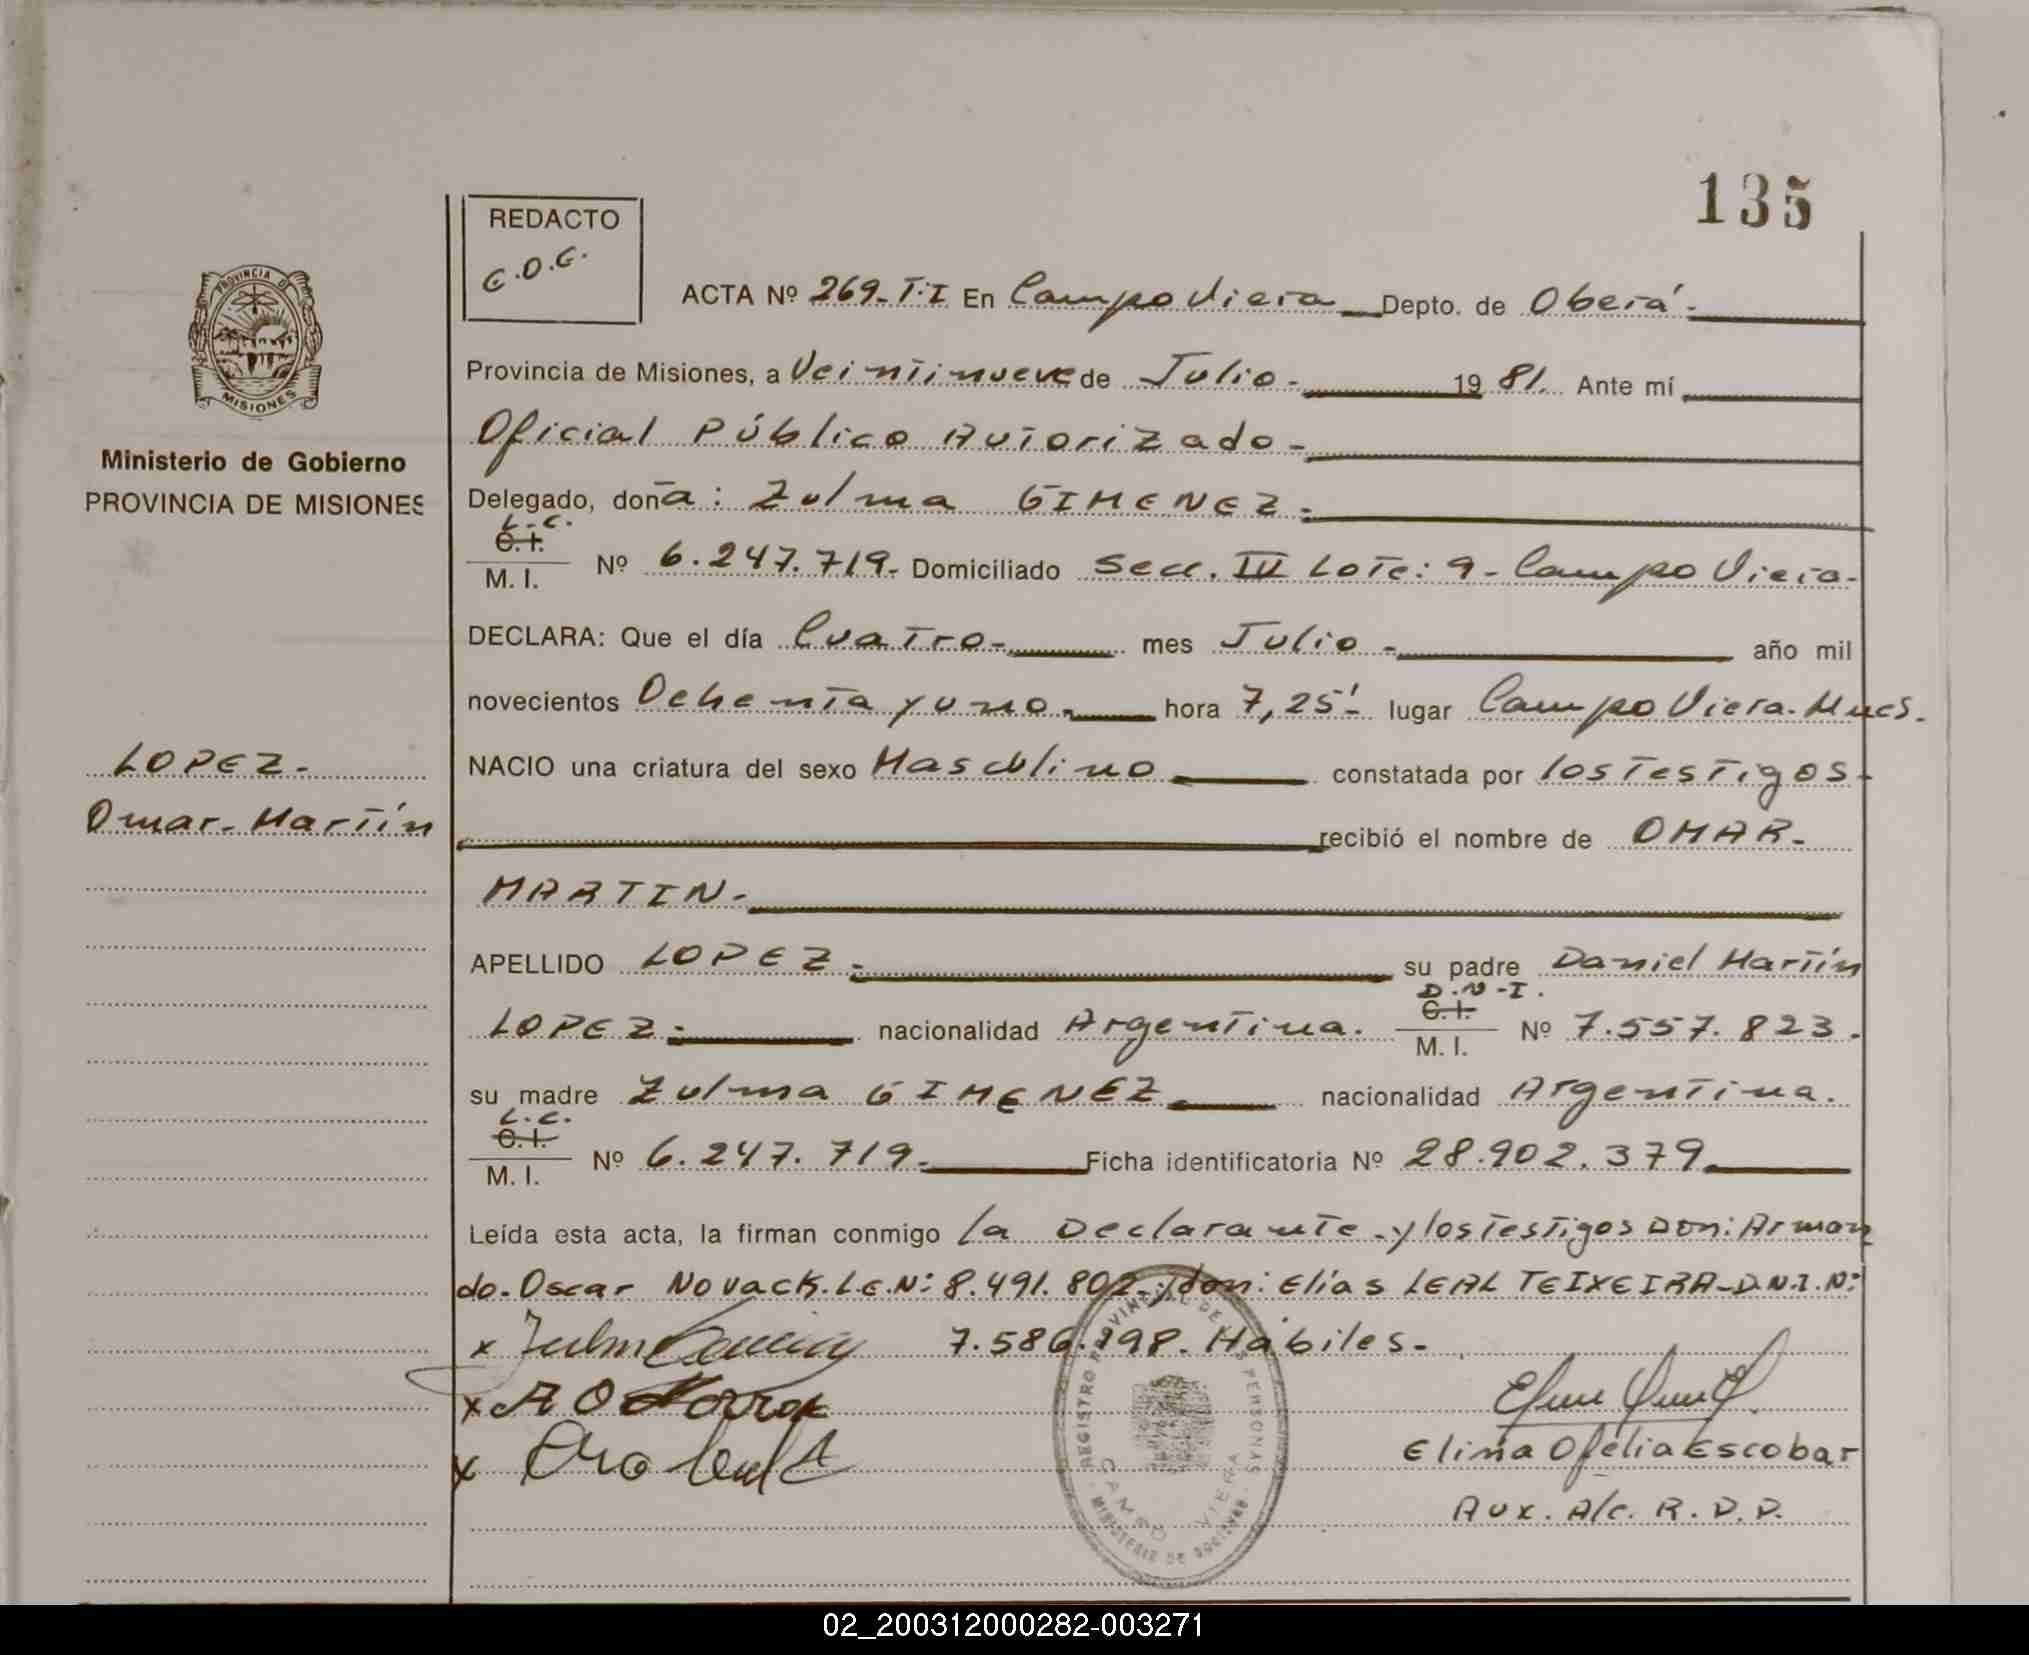 135
REDACTO
E.O.E.
ACTA Nº 269-T.I En Campo Viera Depto. de Oberá.-
PROVINCIA DE
MISIONES
Provincia de Misiones, a Veintinueve de Julio.- 1981. Ante mí
Oficial Público Autorizado.-
Ministerio de Gobierno
PROVINCIA DE MISIONES
Delegado, doña: Zulma GIMENEZ.-
L.C.
C.I.
M. I. Nº 6.247.719.- Domiciliado Secc. IV Lote: 9 - Campo Viera-
DECLARA: Que el día Cuatro.- mes Julio.- año mil
novecientos Ochenta y uno.- hora 7,25'- lugar Campo Viera. Mnes.
LOPEZ.- NACIO una criatura del sexo Masculino constatada por los Testigos-
Omar-Martín recibió el nombre de OMAR-
MARTIN.-
APELLIDO LOPEZ.- su padre Daniel Martín
D.N.I.
C.I.
LOPEZ.- nacionalidad Argentina. M. I. Nº 7.557.823.-
su madre Zulma GIMENEZ nacionalidad Argentina.
L.C.
C.I.
M. I. Nº 6.247.719.- Ficha identificatoria Nº 28.902.379
Leída esta acta, la firman conmigo la Declarante.-y los Testigos Don: Arman
do. Oscar Novack. L.E.N: 8.491.802.-y don: Elías LEAL TEIXEIRA-D.N.I.N:
x 7.586.198. Hábiles.-
x
x
Elina Ofelia Escobar
Aux. A/c. R.D.P.
REGISTRO PROVINCIAL DE LAS PERSONAS
CAMPO VIERA
MINISTERIO DE GOBIERNO
02_200312000282-003271